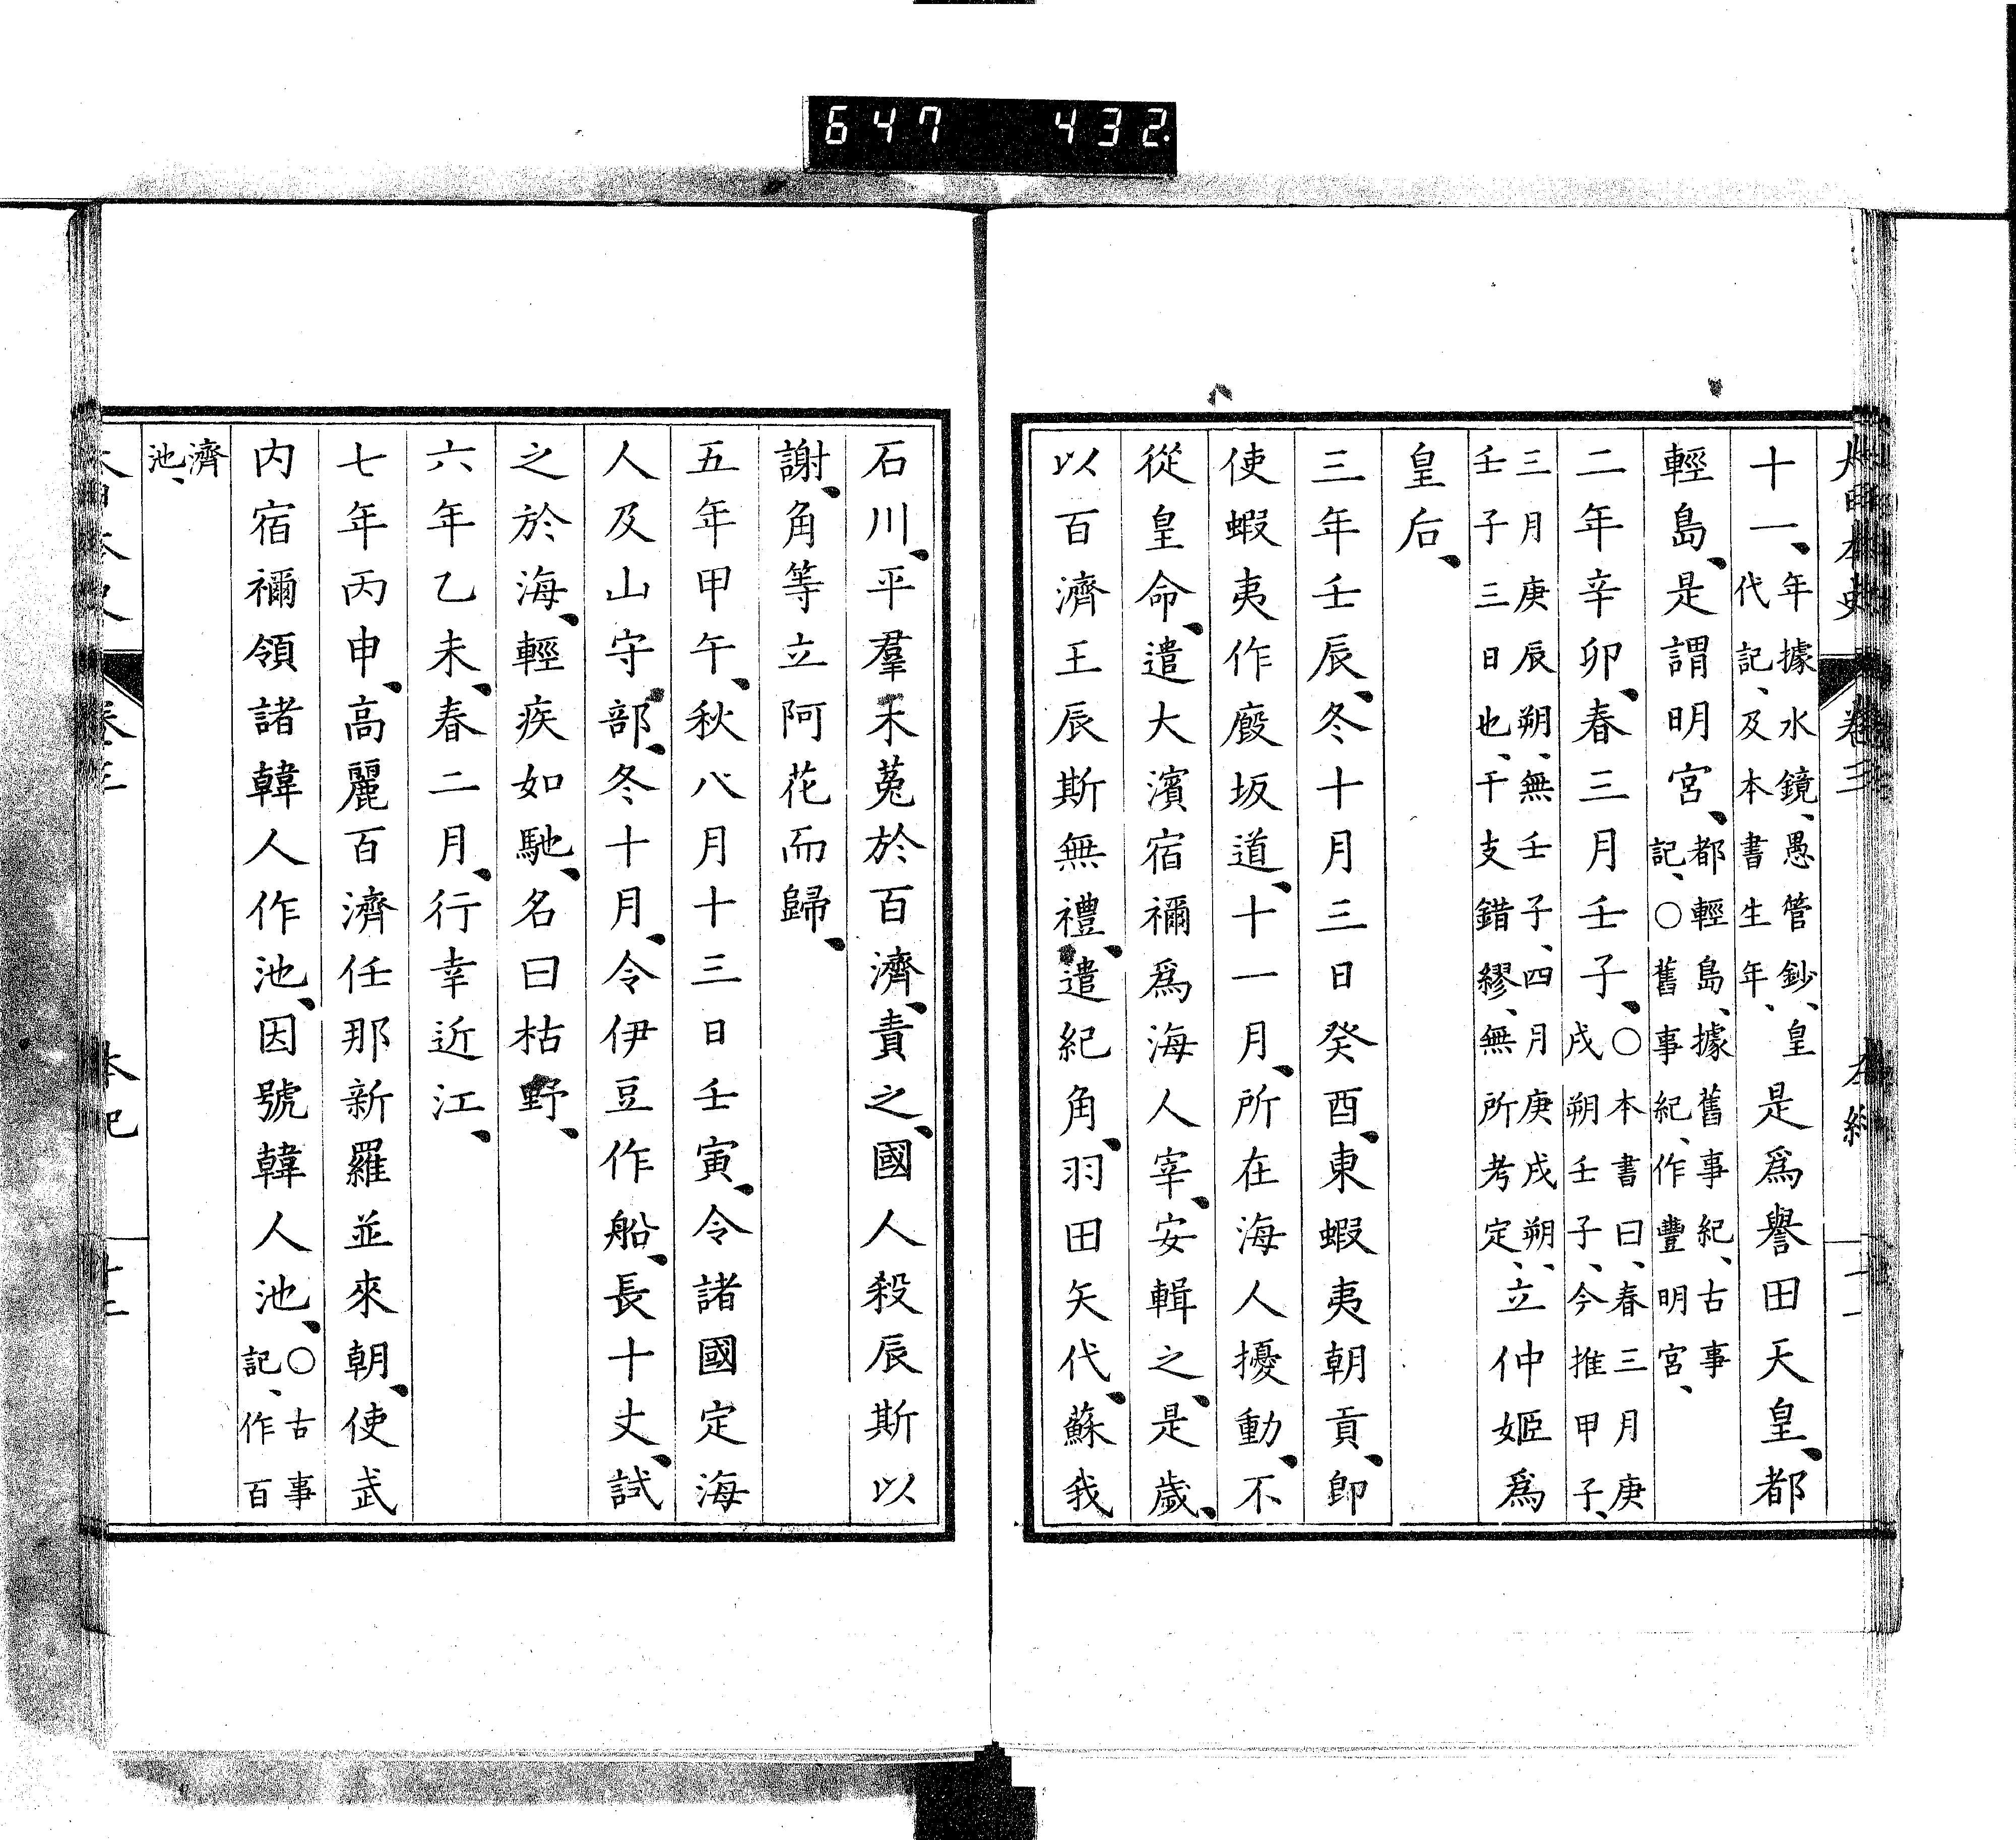 647 432
十一、年據水鏡、愚管鈔、皇代記、及本書生年、是爲譽田天皇、都
輕島、是謂明宮、都輕島、據舊事紀、古事記、○舊事紀、作豐明宮、
二年辛卯、春三月壬子、○本書曰、春三月庚戌朔壬子、今推甲子、
三月庚辰朔、無壬子、四月庚戌朔、壬子三日也、干支錯繆、無所考定、立仲姬爲
皇后、
三年壬辰、冬十月三日癸酉、東蝦夷朝貢、卽
使蝦夷作廄坂道、十一月、所在海人擾動、不
從皇命、遣大濱宿禰爲海人宰、安輯之、是歲、
以百濟王辰斯無禮、遣紀角、羽田矢代、蘇我
石川、平羣木菟於百濟、責之、國人殺辰斯以
謝、角等立阿花而歸、
五年甲午、秋八月十三日壬寅、令諸國定海
人及山守部、冬十月、令伊豆作船、長十丈、試
之於海、輕疾如馳、名曰枯野、
六年乙未、春二月、行幸近江、
七年丙申、高麗百濟任那新羅並來朝、使武
內宿禰領諸韓人作池、因號韓人池、○古事記、作百
濟池、